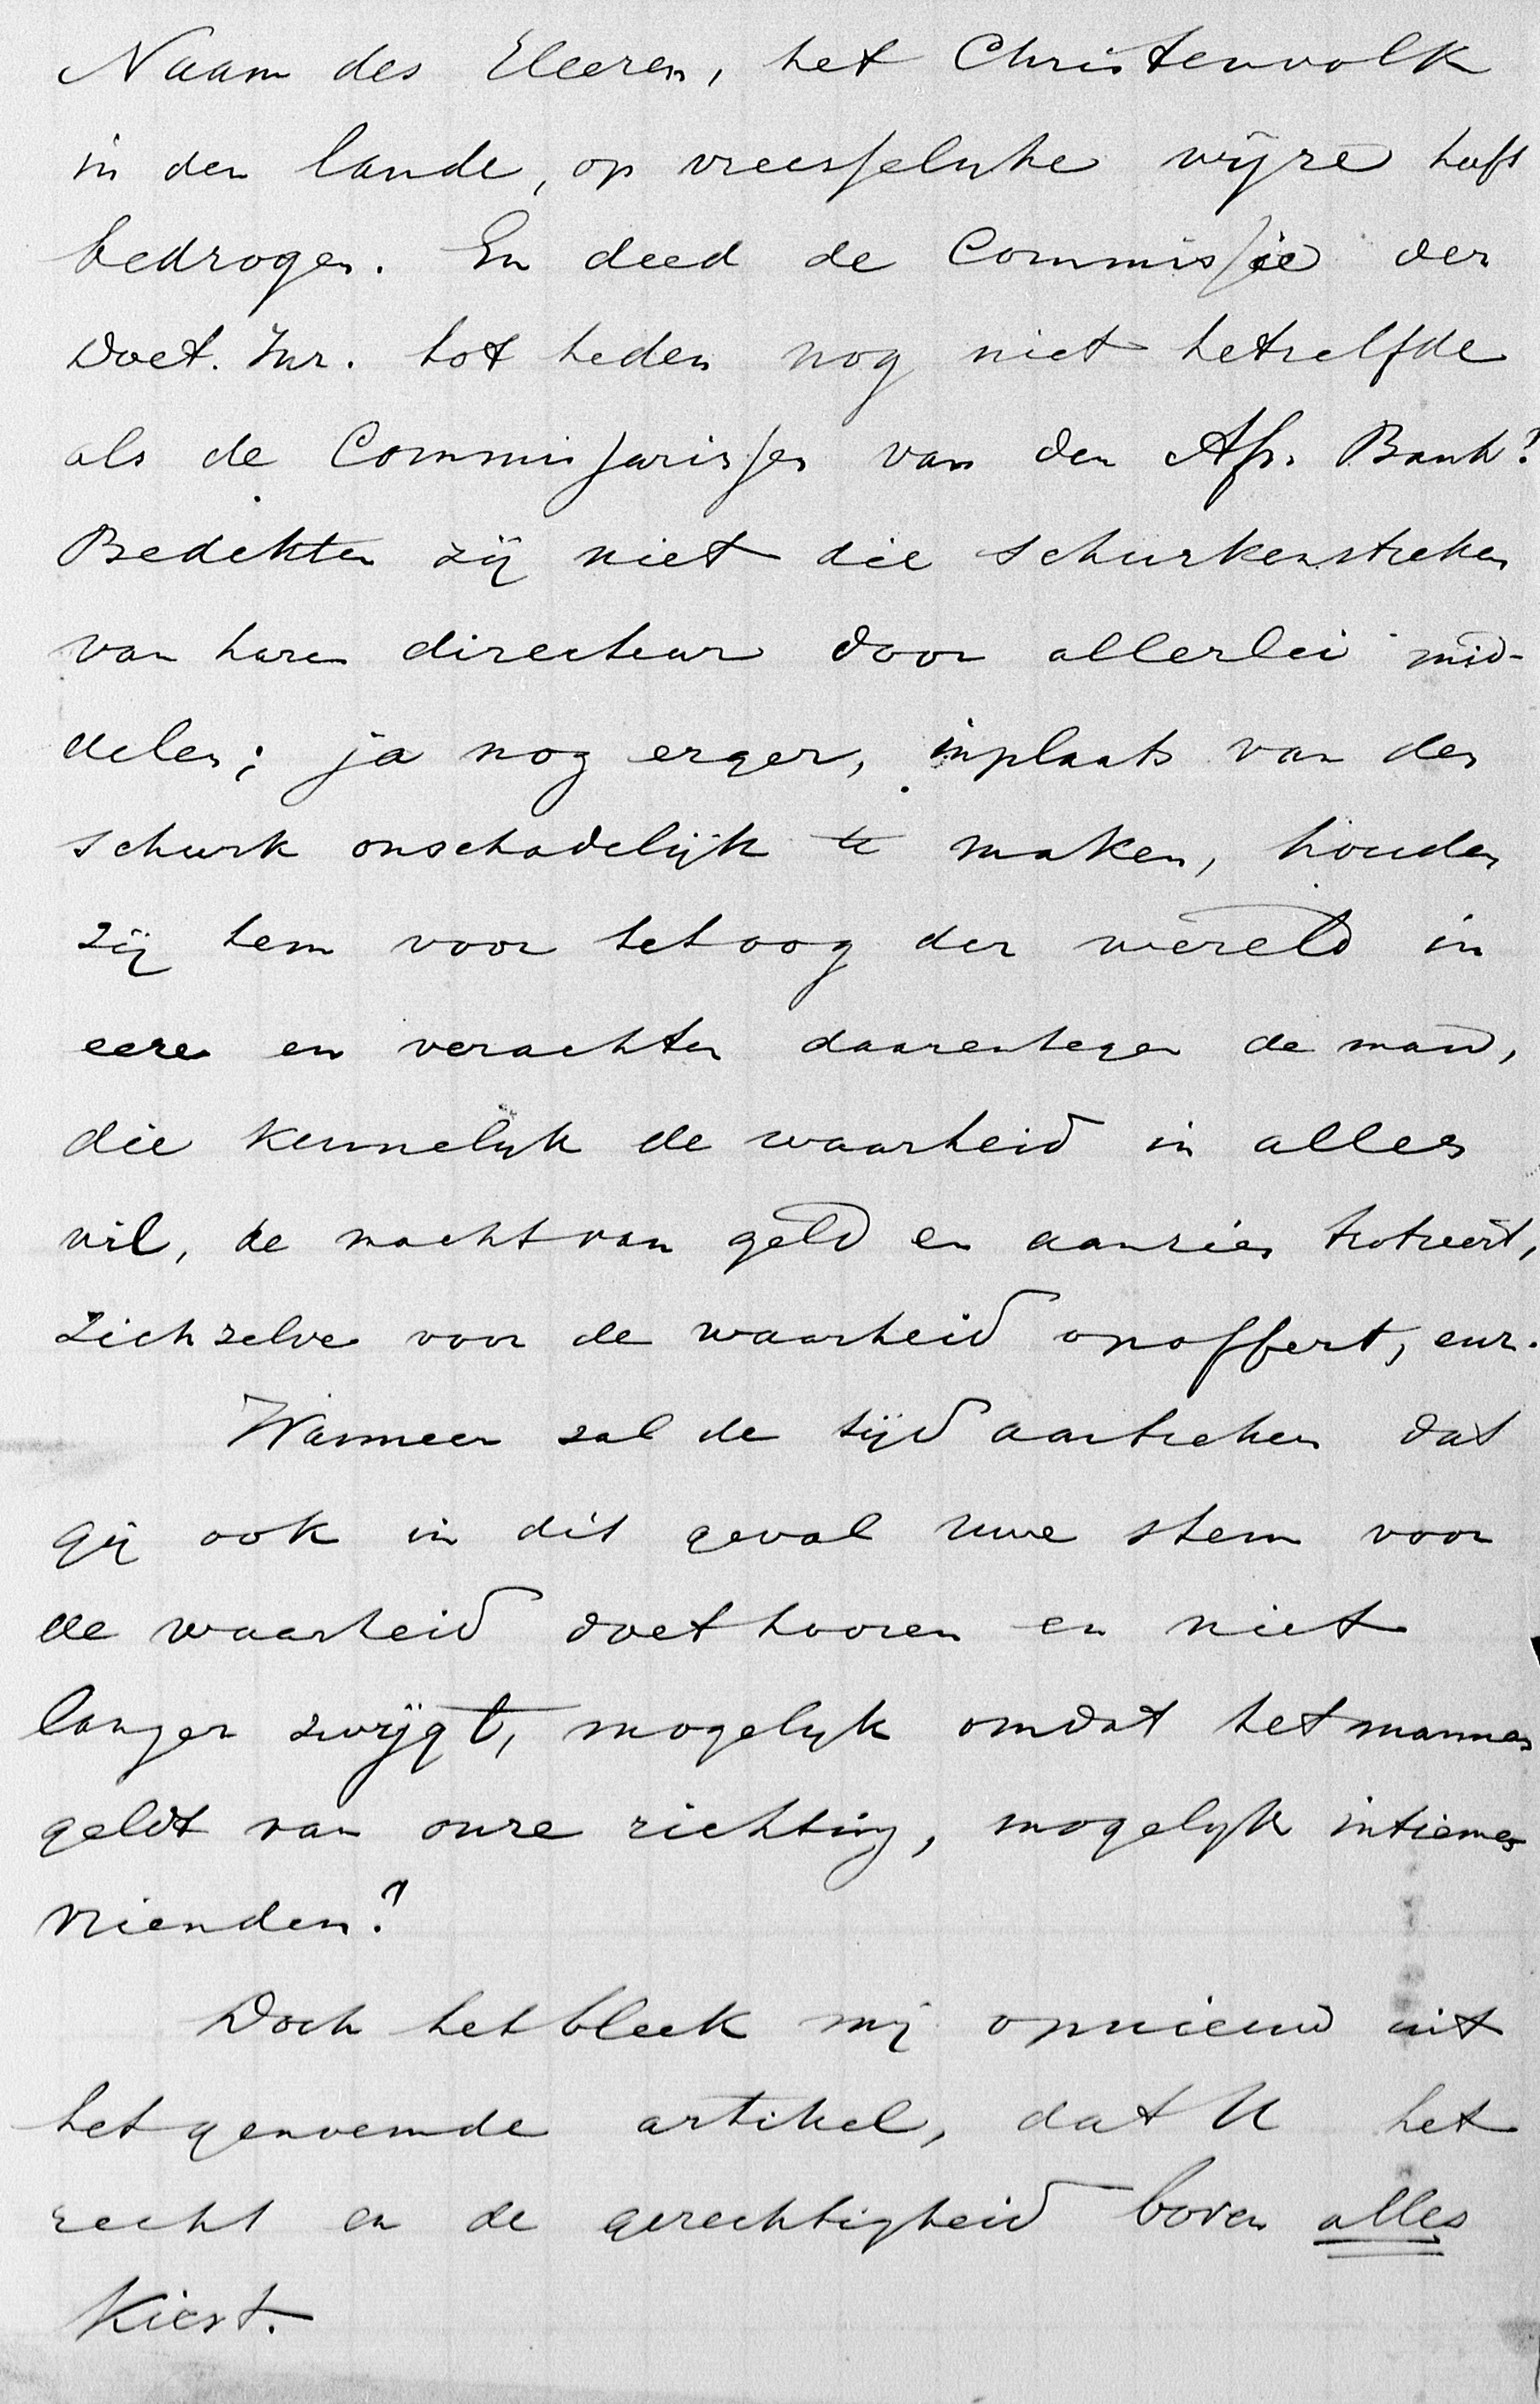 Naam des Heeren, het Christenvolk
in den lande, op vreesselijke wijze heeft
bedrogen. En deed de Commissie der
Doet. Inr. tot heden nog niet hetzelfde
als de Commissarissen van den Afr. Bank?
Bedekten zij niet die schurkenstreken
van haren directeur door allerlei mid-
delen; ja nog erger, inplaats van den
schurk onschadelijk te maken, houden
zij hem voor het oog der wereld in
eere en verachten daarentegen de man,
die kennelijk de waarheid in alles
wil, de macht van geld en aanzien trotseert,
zich zelve voor de waarheid opoffert, enz.
Wanneer zal de tijd aanbreken dat
gij ook in dit geval uwe stem voor
de waarheid doet hooren en niet
langer zwijgt, mogelijk omdat het mannen
geldt van onze richting, mogelijk intieme
vrienden?
Doch het bleek mij opnieuw uit
het genoemde artikel, dat U het
recht en de gerechtigheid boven alles
kiest.